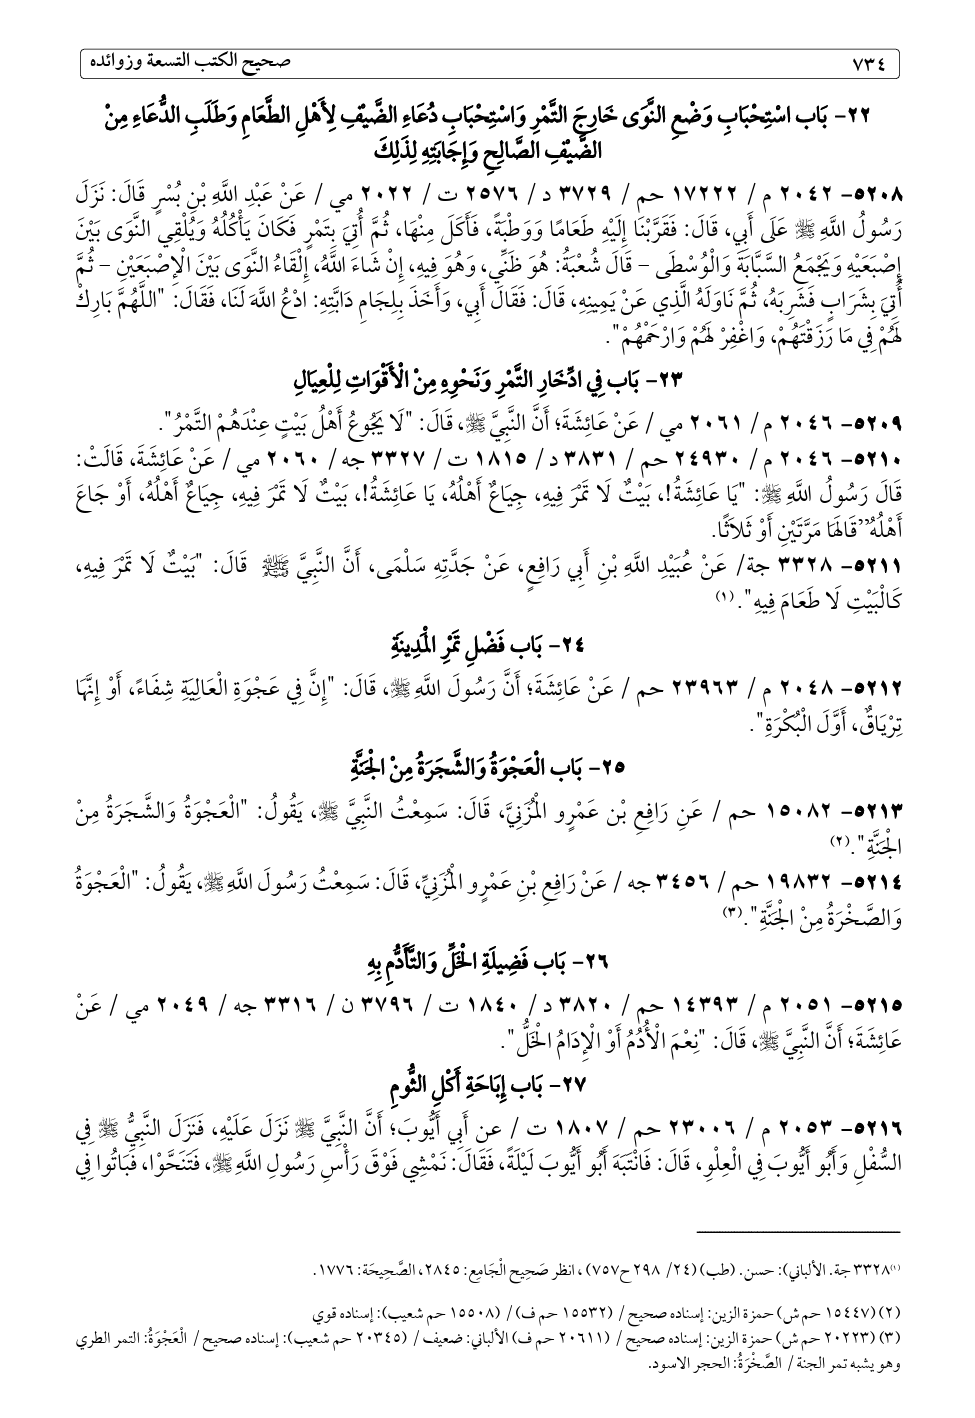 ٧٣٤ صحيح الكتب التسعة وزوائده
٢٢- بَاب اسْتِحْبَابِ وَضْعِ النَّوَى خَارِجَ التَّمْرِ وَاسْتِحْبَابِ دُعَاءِ الضَّيْفِ لِأَهْلِ الطَّعَامِ وَطَلَبِ الدُّعَاءِ مِنْ
الضَّيْفِ الصَّالِحِ وَإِجَابَتِهِ لِذَلِكَ
٥٢٠٨- ٢٠٤٢ م / ١٧٢٢٢ حم / ٣٧٢٩ د / ٢٥٧٦ ت / ٢٠٢٢ مي / عَنْ عَبْدِ اللَّهِ بْنِ بُسْرٍ قَالَ: نَزَلَ
رَسُولُ اللَّهِ ﷺ عَلَى أَبِي، قَالَ: فَقَرَّبْنَا إِلَيْهِ طَعَامًا وَوَطْبَةً، فَأَكَلَ مِنْهَا، ثُمَّ أُتِيَ بِتَمْرٍ فَكَانَ يَأْكُلُهُ وَيُلْقِي النَّوَى بَيْنَ
إِصْبَعَيْهِ وَيَجْمَعُ السَّبَّابَةَ وَالْوُسْطَى – قَالَ شُعْبَةُ: هُوَ ظَنِّي، وَهُوَ فِيهِ، إِنْ شَاءَ اللَّهُ، إِلْقَاءُ النَّوَى بَيْنَ الْإِصْبَعَيْنِ – ثُمَّ
أُتِيَ بِشَرَابٍ فَشَرِبَهُ، ثُمَّ نَاوَلَهُ الَّذِي عَنْ يَمِينِهِ، قَالَ: فَقَالَ أَبِي، وَأَخَذَ بِلِجَامِ دَابَّتِهِ: ادْعُ اللَّهَ لَنَا، فَقَالَ: "اللَّهُمَّ بَارِكْ
لَهُمْ فِي مَا رَزَقْتَهُمْ، وَاغْفِرْ لَهُمْ وَارْحَمْهُمْ".
٢٣- بَاب فِي ادِّخَارِ التَّمْرِ وَنَحْوِهِ مِنْ الْأَقْوَاتِ لِلْعِيَالِ
٥٢٠٩- ٢٠٤٦ م / ٢٠٦١ مي / عَنْ عَائِشَةَ؛ أَنَّ النَّبِيَّ ﷺ، قَالَ: "لَا يَجُوعُ أَهْلُ بَيْتٍ عِنْدَهُمْ التَّمْرُ".
٥٢١٠- ٢٠٤٦ م / ٢٤٩٣٠ حم / ٣٨٣١ د / ١٨١٥ ت / ٣٣٢٧ جه / ٢٠٦٠ مي / عَنْ عَائِشَةَ، قَالَتْ:
قَالَ رَسُولُ اللَّهِ ﷺ: "يَا عَائِشَةُ!، بَيْتٌ لَا تَمْرَ فِيهِ، جِيَاعٌ أَهْلُهُ، يَا عَائِشَةُ!، بَيْتٌ لَا تَمْرَ فِيهِ، جِيَاعٌ أَهْلُهُ، أَوْ جَاعَ
أَهْلُهُ" قَالَهَا مَرَّتَيْنِ أَوْ ثَلَاثًا.
٥٢١١- ٣٣٢٨ جة/ عَنْ عُبَيْدِ اللَّهِ بْنِ أَبِي رَافِعٍ، عَنْ جَدَّتِهِ سَلْمَى، أَنَّ النَّبِيَّ ﷺ قَالَ: "بَيْتٌ لَا تَمْرَ فِيهِ،
كَالْبَيْتِ لَا طَعَامَ فِيهِ".(١)
٢٤- بَاب فَضْلِ تَمْرِ الْمَدِينَةِ
٥٢١٢- ٢٠٤٨ م / ٢٣٩٦٣ حم / عَنْ عَائِشَةَ؛ أَنَّ رَسُولَ اللَّهِ ﷺ، قَالَ: "إِنَّ فِي عَجْوَةِ الْعَالِيَةِ شِفَاءً، أَوْ إِنَّهَا
تِرْيَاقٌ، أَوَّلَ الْبُكْرَةِ".
٢٥- بَاب الْعَجْوَةُ وَالشَّجَرَةُ مِنْ الْجَنَّةِ
٥٢١٣- ١٥٠٨٢ حم / عَنِ رَافِعِ بْن عَمْرِو الْمُزَنِيَّ، قَالَ: سَمِعْتُ النَّبِيَّ ﷺ، يَقُولُ: "الْعَجْوَةُ وَالشَّجَرَةُ مِنْ
الْجَنَّةِ".(٢)
٥٢١٤- ١٩٨٣٢ حم / ٣٤٥٦ جه / عَنْ رَافِعِ بْنِ عَمْرِو الْمُزَنِيِّ، قَالَ: سَمِعْتُ رَسُولَ اللَّهِ ﷺ، يَقُولُ: "الْعَجْوَةُ
وَالصَّخْرَةُ مِنْ الْجَنَّةِ".(٣)
٢٦- بَاب فَضِيلَةِ الْخَلِّ وَالتَّأَدُّمِ بِهِ
٥٢١٥- ٢٠٥١ م / ١٤٣٩٣ حم / ٣٨٢٠ د / ١٨٤٠ ت / ٣٧٩٦ ن / ٣٣١٦ جه / ٢٠٤٩ مي / عَنْ
عَائِشَةَ؛ أَنَّ النَّبِيَّ ﷺ، قَالَ: "نِعْمَ الْأُدُمُ أَوْ الْإِدَامُ الْخَلُّ".
٢٧- بَاب إِبَاحَةِ أَكْلِ الثُّومِ
٥٢١٦- ٢٠٥٣ م / ٢٣٠٠٦ حم / ١٨٠٧ ت / عن أَبِي أَيُّوبَ؛ أَنَّ النَّبِيَّ ﷺ نَزَلَ عَلَيْهِ، فَنَزَلَ النَّبِيُّ ﷺ فِي
السُّفْلِ وَأَبُو أَيُّوبَ فِي الْعِلْوِ، قَالَ: فَانْتَبَهَ أَبُو أَيُّوبَ لَيْلَةً، فَقَالَ: نَمْشِي فَوْقَ رَأْسِ رَسُولِ اللَّهِ ﷺ، فَتَنَحَّوْا، فَبَاتُوا فِي
(١)٣٣٢٨ جة. الألباني): حسن. (طب) (٢٤/ ٢٩٨ ح٧٥٧)، انظر صَحِيح الْجَامِع: ٢٨٤٥، الصَّحِيحَة: ١٧٧٦.
(٢) (١٥٤٤٧ حم ش) حمزة الزين: إسناده صحيح / (١٥٥٣٢ حم ف) / (١٥٥٠٨ حم شعيب): إسناده قوي
(٣) (٢٠٢٢٣ حم ش) حمزة الزين: إسناده صحيح / (٢٠٦١١ حم ف) الألباني: ضعيف / (٢٠٣٤٥ حم شعيب): إسناده صحيح / الْعَجْوَةُ: التمر الطري
وهو يشبه تمر الجنة / الصَّخْرَةُ: الحجر الاسود.